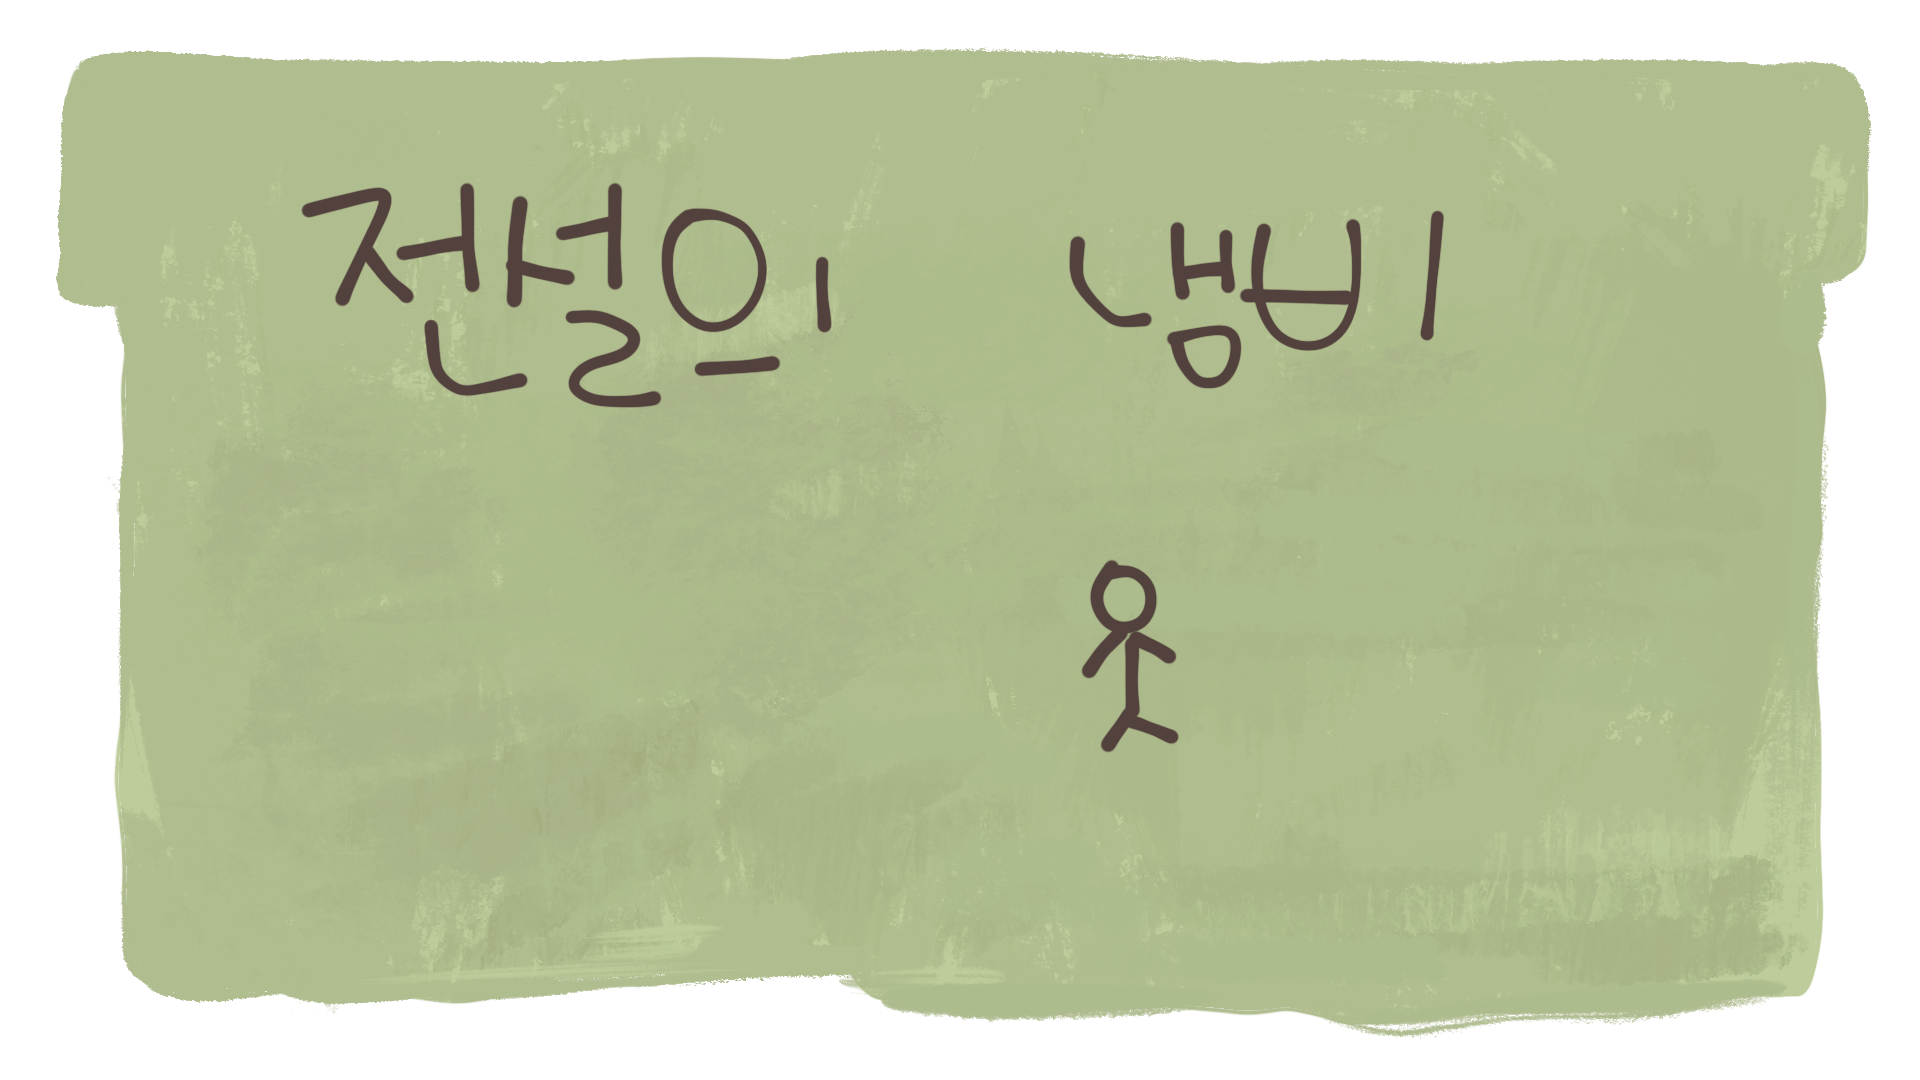 전설의 냄비